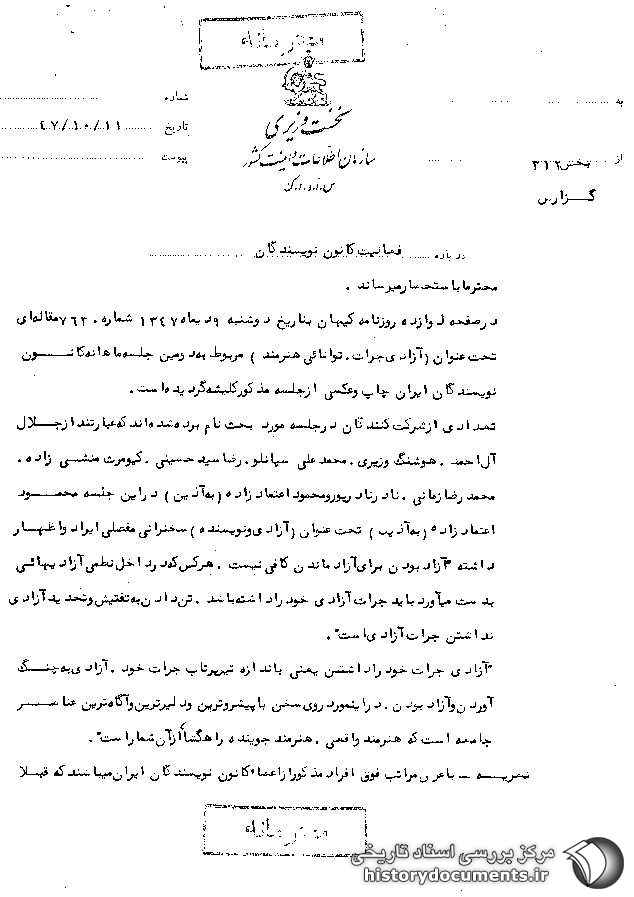 محرمانه
نخست وزیری
سازمان اطلاعات و امنیت کشور
س.ا.و.ا.ک
به
شماره
از بخش ۳۱۲
تاریخ ۴۷/۱۰/۱۱
پیوست
گزارش
درباره فعالیت کانون نویسندگان
محترما باستحضار میرساند .
در صفحه دوازده روزنامه کیهان بتاریخ دوشنبه ۹ دیماه ۱۳۴۷ شماره ۷۶۳۰ مقاله‌ای
تحت عنوان (آزادی جرات ، توانائی هنرمند ) مربوط به دومین جلسه ماهانه کانون
نویسندگان ایران چاپ و عکسی از جلسه مذکور کلیشه گردیده است .
تعدادی از شرکت کنندگان در جلسه مورد بحث نام برده شده‌اند که عبارتند از جلال
آل احمد . هوشنگ وزیری . محمد علی سپانلو . رضا سید حسینی . کیومرث منشی زاده .
محمد رضا زمانی . نادر نادرپور و محمود اعتماد زاده (به آذین ) در این جلسه محمود
اعتماد زاده (به آذین ) تحت عنوان (آزادی و نویسنده ) سخنرانی مفصلی ایراد و اظهار
داشته "آزاد بودن برای آزاد ماندن کافی نیست . هر کس که در داخل نظمی آزادیهائی
بدست میآورد باید جرات آزادی خود را داشته باشد . تن دادن به تفتیش و تحدید آزادی
نداشتن جرات آزادی است" .
"آزادی جرات خود را داشتن یعنی باندازه تیررپرتاب جرات خود . آزادی به چنگ
آوردن و آزاد بودن . در اینمورد روی سخن با پیشروترین و دلیرترین و آگاه‌ترین عناصر
جامعه است که هنرمند واقعی . هنرمند جوینده راهگشا از آن شمار است" .
نظریه - با عرض مراتب فوق افراد مذکور از اعضاء کانون نویسندگان ایران میباشند که قبلا
محرمانه
مرکز بررسی اسناد تاریخی
historydocuments.ir